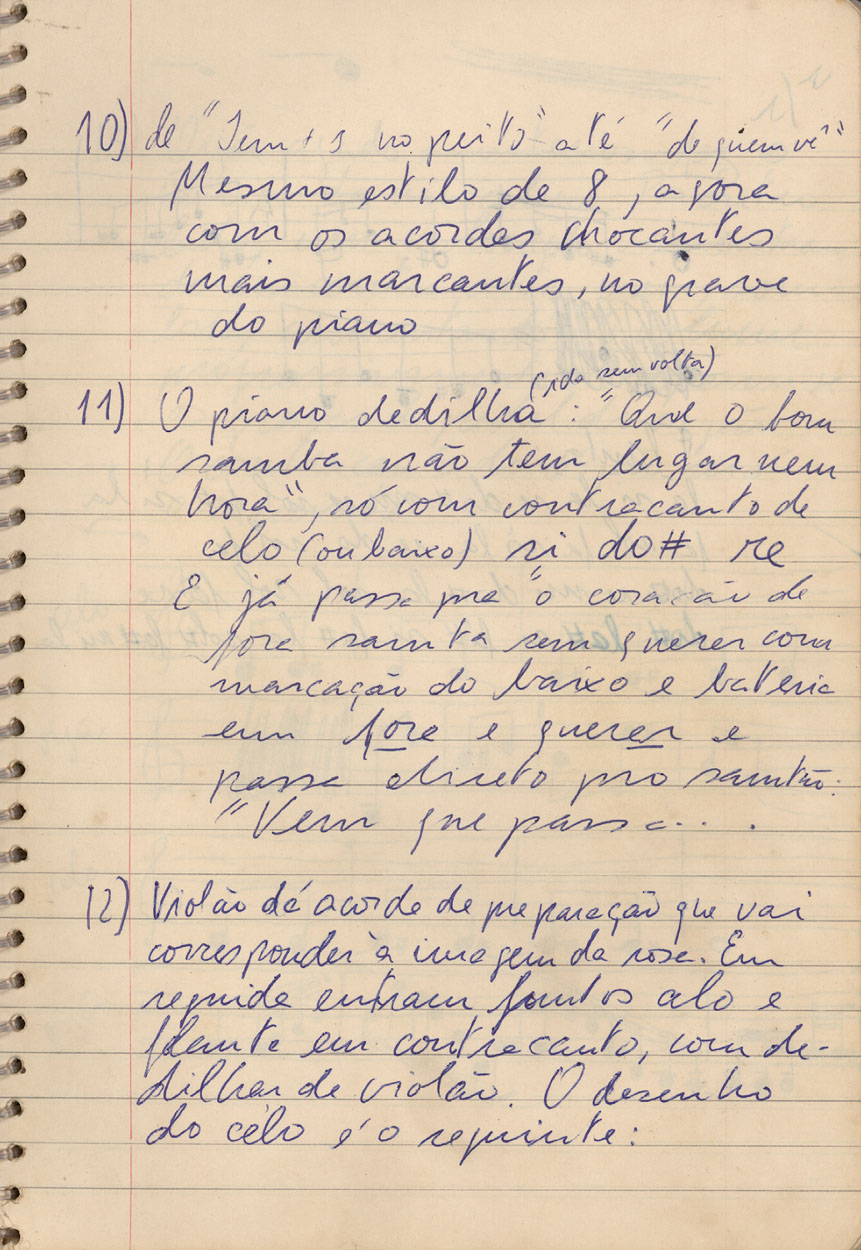 10) de "Sem + s no peito" até "de quem vê"
Mesmo estilo de 8, agora
com os acordes chocantes
mais marcantes, no grave
do piano
(ida sem volta)
11) O piano dedilha : "Que o bom
samba não tem lugar nem
hora", só com contracanto de
celo (ou baixo) si do# re
E já passa pra "o coração de
fora samba sem querer com
marcação do baixo e bateria
em fora e querer e
passa direto pro sambão:
"Vem que passa....
12) Violão dá acorde de preparação que vai
corresponder à imagem da rosa. Em
seguida entram juntos celo e
flauta em contracanto, com de-
dilhar de violão. O desenho
do celo é o seguinte: